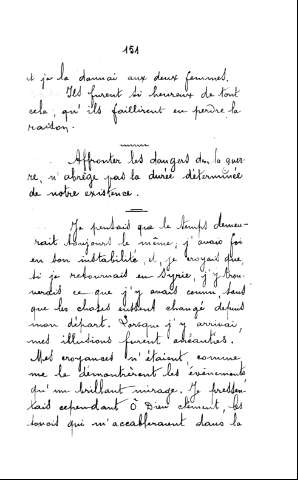 151
et je la donnai aux deux femmes.
Ils furent si heureux de tout
cela, qu'ils faillirent en perdre la
raison.
Affronter les dangers de la guer-
re, n'abrège pas la durée déterminée
de notre existence.
Je pensais que le temps demeu-
rait toujours le même, j'avais foi
en son instabilité et, je croyais que,
si je retournais en Syrie, j'y trou-
verais ce que j'y avais connu, sans
que les choses eussent changé depuis
mon départ. Lorsque j'y arrivai,
mes illusions furent anéanties.
Mes croyances n'étaient, comme
me le démontrèrent les événements
qu'un brillant mirage. Je pressen-
tais cependant Ô Dieu clément, les
soucis qui m'accableraient dans la